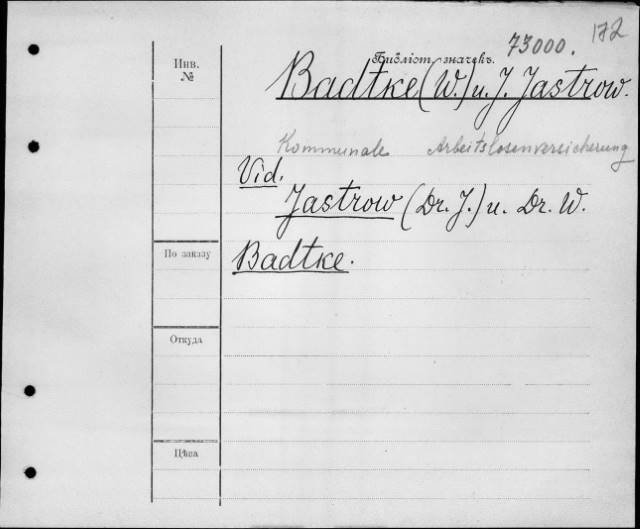 172
73000.
Инв.
№
Библіот. значекъ.
Badtke (W.) u. J. Jastrow.
Kommunale Arbeitslosenversicherung
Vid.
Jastrow (Dr. J.) u. Dr. W.
Badtke.
По заказу
Откуда
Цѣна